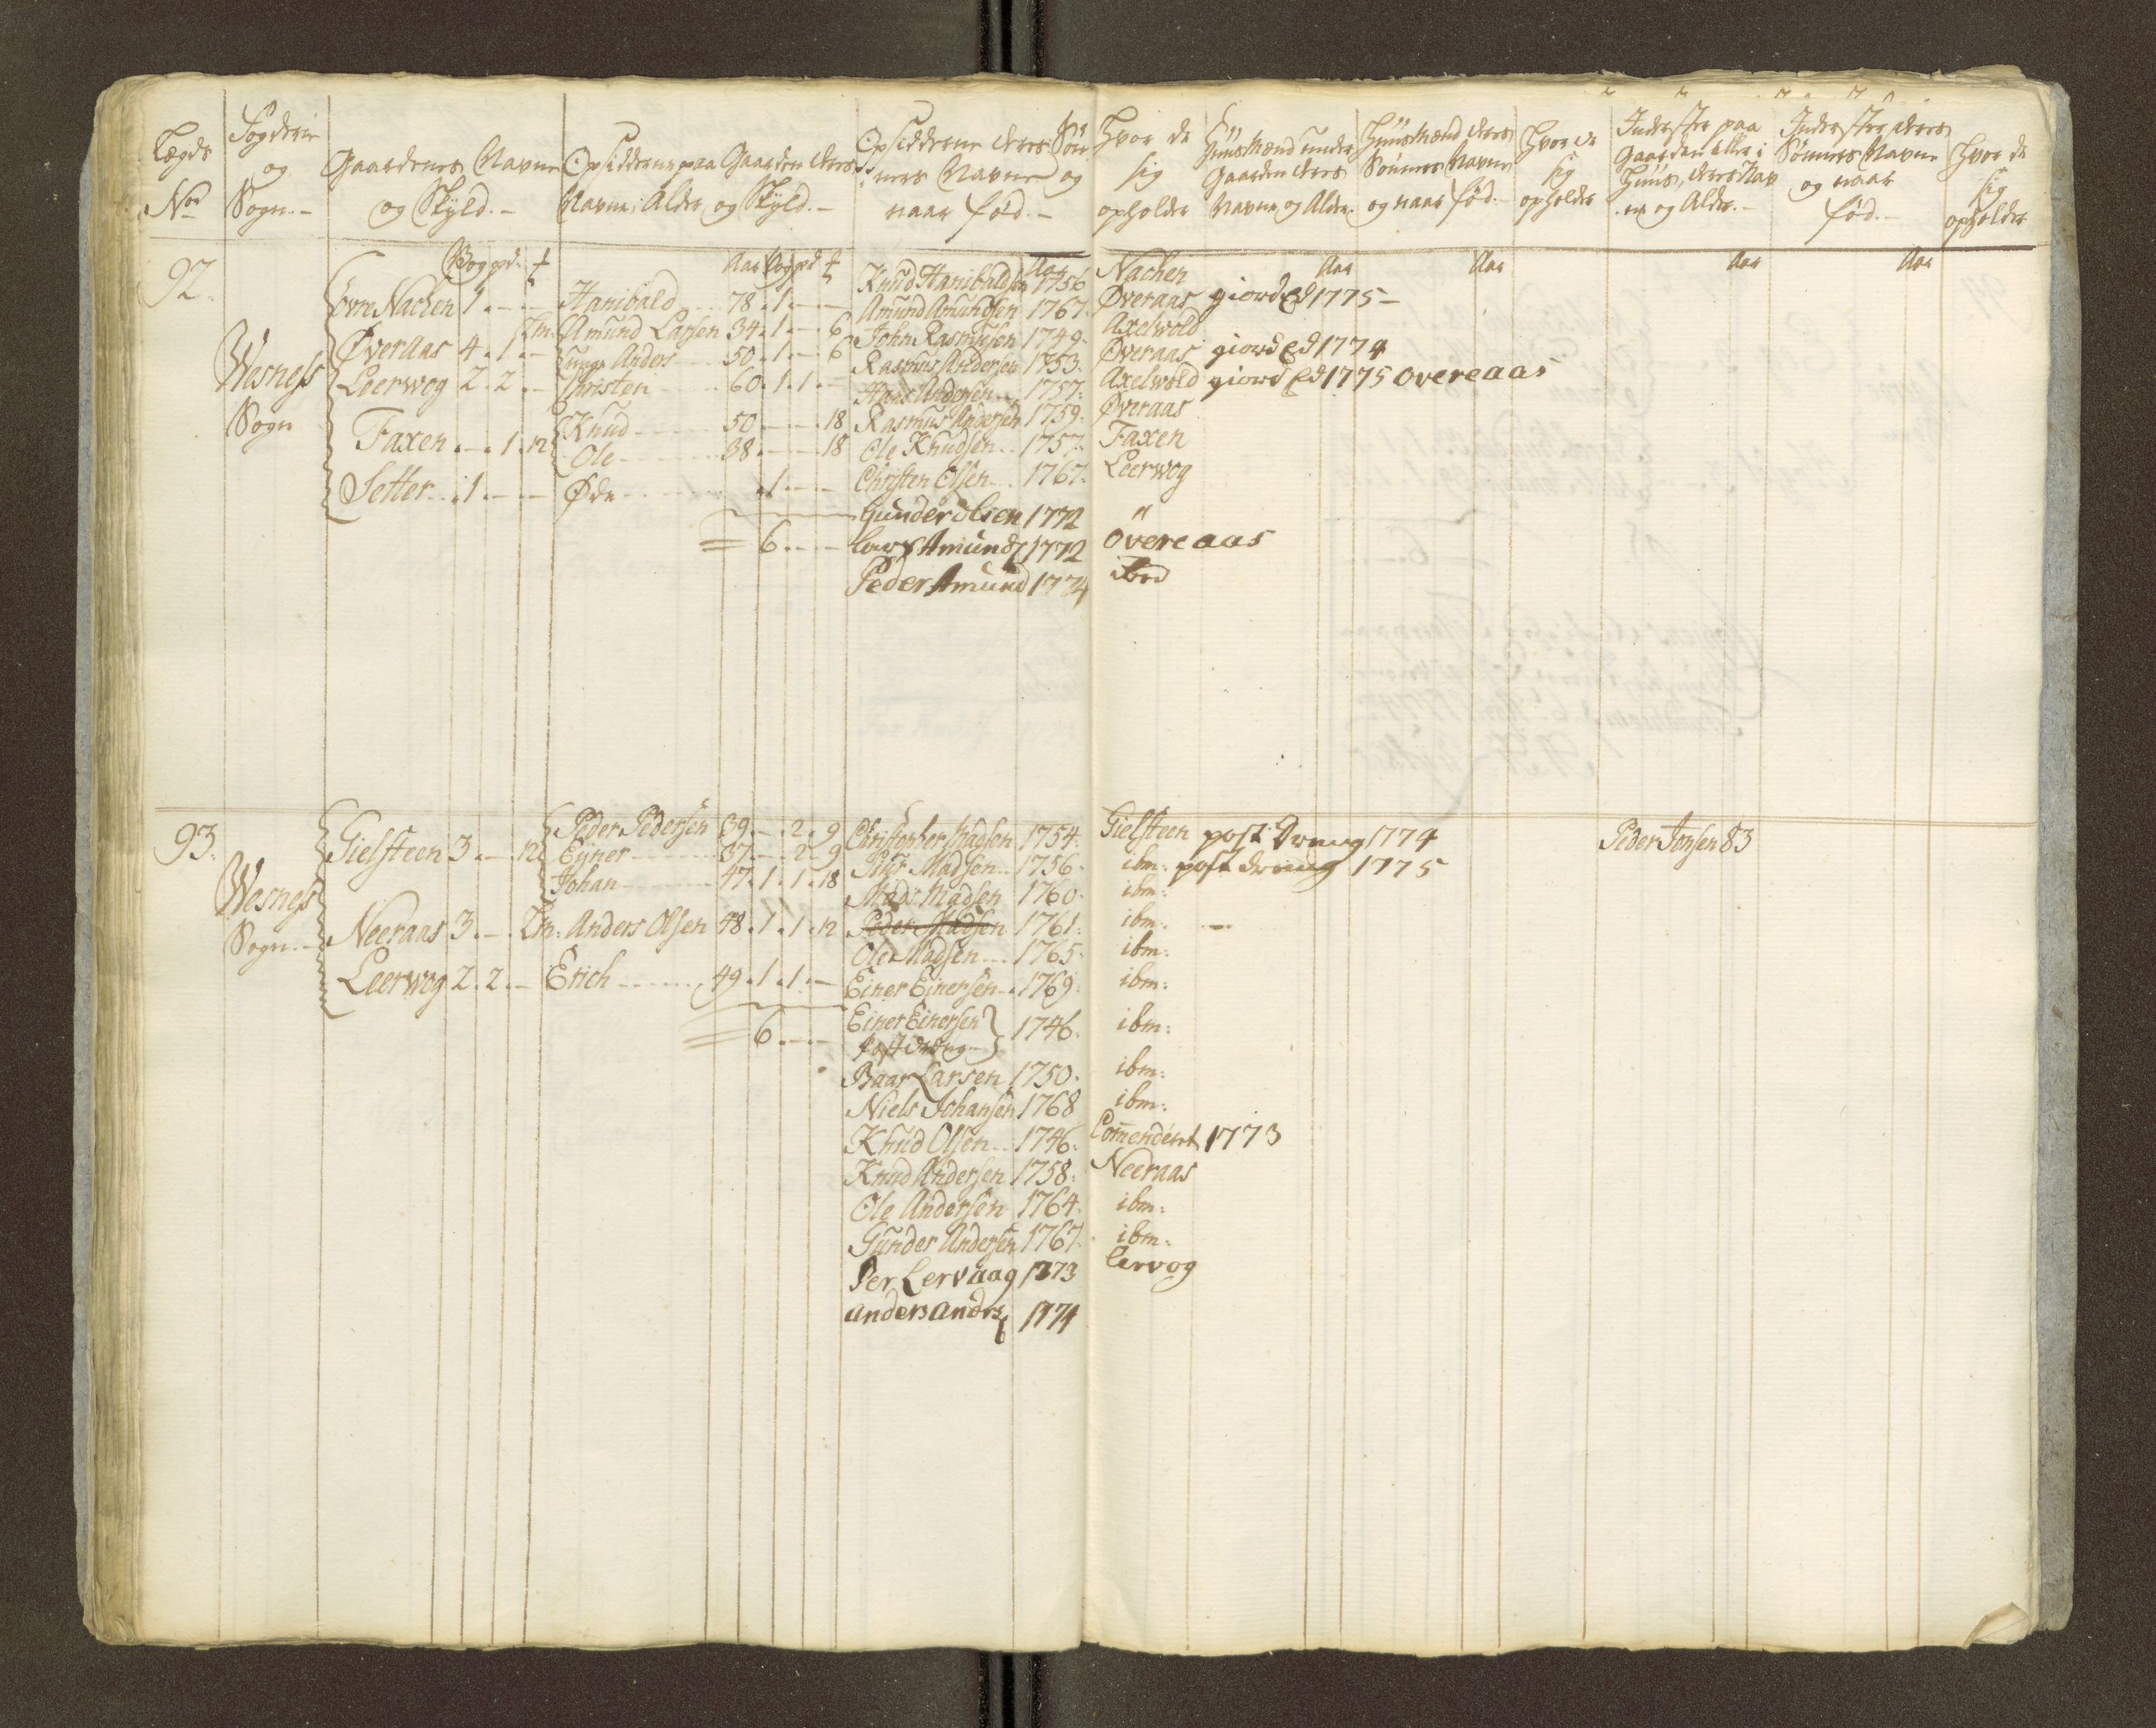 Lægds
No
Fogderie
og
Sogn.-
Gaardenes Navne
og Skyld.-
Opsiddere paa Gaarden deres
Navne, Alder og Skyld.-
Opsidderne deres Sön-
ners Navne og
naar föd.-
Hvor de
sig
opholder
Huusmænd under
Gaarden deres
Navne og Alder.
Huusmænd deres
Sönners Navne
og naar föd.-
Hvor de
sig
opholder
Inderster paa
Gaarden eller i
Huus, deres Nav
ne og Alder.-
Inderster, deres
Sönners Navne
og naar
föd.-
Hvor de
sig
opholder
92.
Wesness
Sogn
Öwre Nachen 1.--
Øveraas 4.1.-
Leerwog 2.2.-
Faxen.-.1.12
Setter..1.--
Hanibald 78.1.--
Lm. Amund Larsen 34.1.-6
unge Anders 50.1.-6
Christen 60.1.1.-
Knud 50.-.-18
Ole 38.-.-18
Øde .1.--
=6.--
Knud Hanibaldsen 1756 Nachen
Amund Amundsen 1767. Øveraas giord Ed 1775-
John Rasmusen 1749. Axelwold
Rasmus Andersen 1753. Øveraas giord Ed 1774
Hans Andersen 1757. Axelwold giord Ed 1775 overeaas
Rasmus Andersen 1759. Øveraas
Ole Knudsen 1757. Faxen
Christen Olsen 1767. Leerwog
Gunder olsen 1772 "
Lars Amunds 1772 overeaas
Peder Amund 1774
93.
Wesness
Sogn.-
Gielsteen 3.-.12
Neeraas 3.-.-
Leerwog 2.2.-
Peder Pedersen 39.-.2.9
Ejner 37.-.2.9
Johan 47.1.1.18
Lm. Anders Olsen 48.1.1.12
Erich 49.1.1.-
=6.--
Christopher Madsen 1754. Gielsteen post Dreng 1774 Peder Jonsen 83
Madsen 1756. ibm: post dreng 1775
Mads Madsen 1760. ibm:
Peder Madsen 1761. ibm:
Ole Madsen 1765. ibm:
Einer Einersen 1769. ibm:
Einer Einersen 1746. ibm:
post dreng
Baar Larsen 1750. ibm:
Niels Johansen 1768 ibm:
Knud Olsen 1746. Commenderet 1773
Knud Andersen 1758. Neeraas
Ole Andersen 1764. ibm:
Gunder Andersen 1767. ibm:
Per Lervaag 1773 Lervog
anders anders 1774